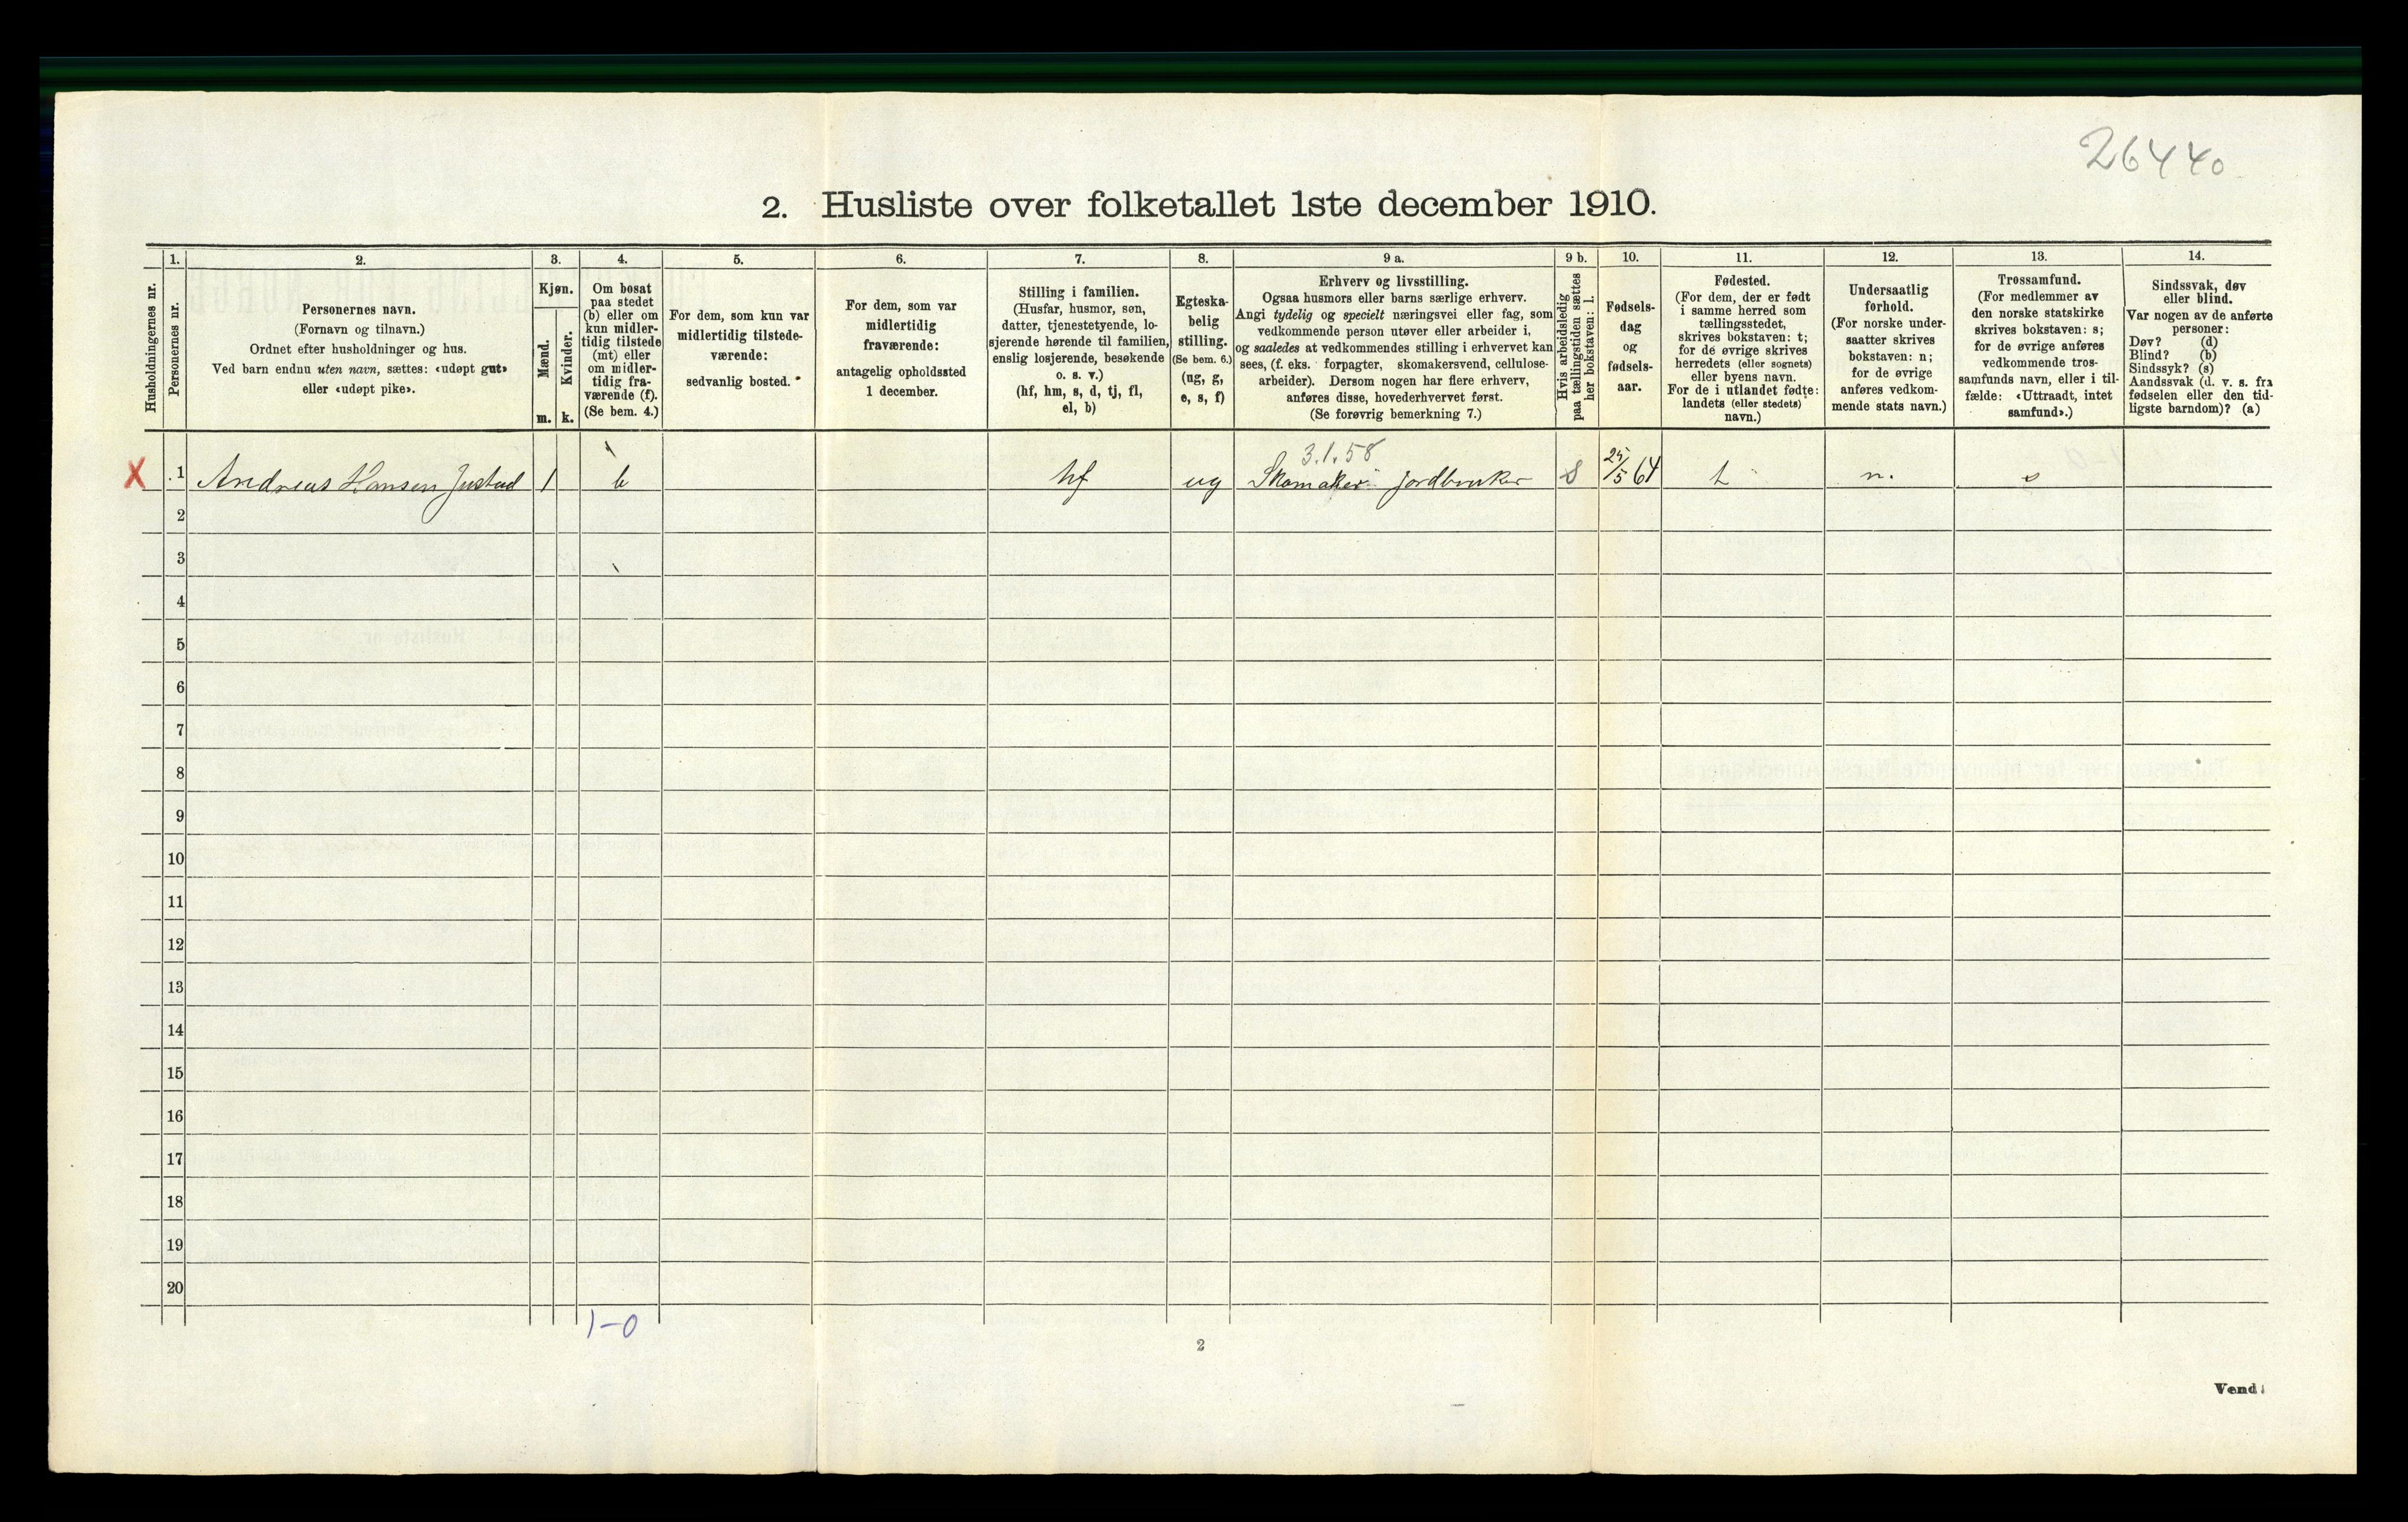 26440
2. Husliste over folketallet 1ste december 1910.
Husholdningernes nr.
1.
Personernes nr.
2.
Personernes navn.
(Fornavn og tilnavn.)
Ordnet efter husholdninger og hus.
Ved barn endnu uten navn, sættes: «udøpt gut»
eller «udøpt pike».
3.
Kjøn.
Mænd.
m.
Kvinder.
k.
4.
Om bosat
paa stedet
(b) eller om
kun midler-
tidig tilstede
(mt) eller
om midler-
tidig fra-
værende (f).
(Se bem. 4.)
5.
For dem, som kun var
midlertidig tilstede-
værende:
sedvanlig bosted.
6.
For dem, som var
midlertidig
fraværende:
antagelig opholdssted
1 december.
7.
Stilling i familien.
(Husfar, husmor, søn,
datter, tjenestetyende, lo-
sjerende hørende til familien,
enslig losjerende, besøkende
o. s. v.)
(hf, hm, s, d, tj, fl,
el, b)
8.
Egteska-
belig
stilling.
(Se bem. 6.)
(ug, g,
e, s, f)
9 a.
Erhverv og livsstilling.
Ogsaa husmors eller barns særlige erhverv.
Angi tydelig og specielt næringsvei eller fag, som
vedkommende person utøver eller arbeider i,
og saaledes at vedkommendes stilling i erhvervet kan
sees, (f. eks. forpagter, skomakersvend, cellulose-
arbeider). Dersom nogen har flere erhverv,
anføres disse, hovederhvervet først.
(Se forøvrig bemerkning 7.)
9 b.
Hvis arbeidsledig
paa tællingstiden sættes
her bokstaven: l.
10.
Fødsels-
dag
og
fødsels-
aar.
11.
Fødested.
(For dem, der er født
i samme herred som
tællingsstedet,
skrives bokstaven: t;
for de øvrige skrives
herredets (eller sognets)
eller byens navn.
For de i utlandet fødte:
landets (eller stedets)
navn.)
12.
Undersaatlig
forhold.
(For norske under-
saatter skrives
bokstaven: n;
for de øvrige
anføres vedkom-
mende stats navn.)
13.
Trossamfund.
(For medlemmer av
den norske statskirke
skrives bokstaven: s;
for de øvrige anføres
vedkommende tros-
samfunds navn, eller i til-
fælde: «Uttraadt, intet
samfund».)
14.
Sindssvak, døv
eller blind.
Var nogen av de anførte
personer:
Døv? (d)
Blind? (b)
Sindssyk? (s)
Aandssvak (d. v. s. fra
fødselen eller den tid-
ligste barndom)? (a)
3.1.58
X 1 Andreas Hansen Justad 1 b hf ug Skomaker Jordbruker S 25/5 64 t n. s
2
3
4
5
6
7
8
9
10
11
12
13
14
15
16
17
18
19
20
1-0
2
Vend!